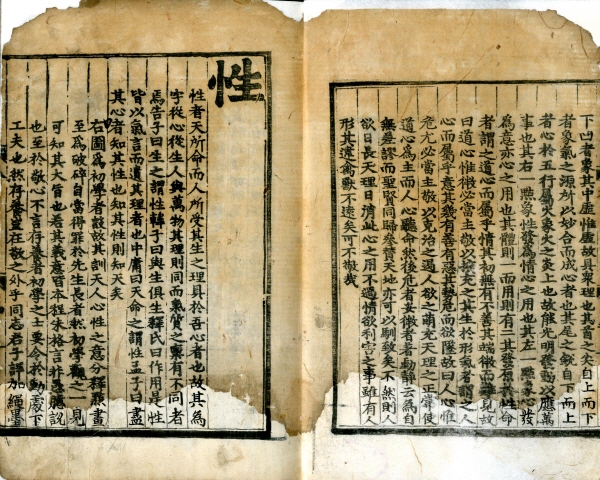 下凹者象其中虛惟虛故具衆理也其首之尖自上而下
者象氣之源所以妙合而成心者也其尾之銳自下而上
者心於五行屬火象火之炎上也故能光明發動以應萬
事也其右一點象性發爲情心之用也其左一點象心發
爲意亦心之用也其體則一而用則有二其發原於性命
者謂之道心而屬乎情其初無有不善其端微而難見故
曰道心惟微必當主敬以擴充之其生於形氣者謂之人
心而屬乎意其幾有善有惡其勢危而欲墜故曰人心惟
危尤必當主敬以克治之遏人欲之萌充天理之正常使
道心爲主而人心聽命然後危者安微者著動靜云爲自
無差謬而聖賢同歸參贊天地亦可以馴致矣不然則人
欲日長天理日消此心之用不過情欲利害之事雖有人
形其違禽獸不遠矣可不敬哉
性
性者天所命而人所受其生之理具於吾心者也故其爲
字從心從生人與萬物其理則同而氣質之稟有不同者
焉告子曰生之謂性韓子曰與生俱生釋氏曰作用是性
皆以氣言而遺其理者也中庸曰天命之謂性孟子曰盡
其心者知其性也知其性則知天矣
右圖爲初學者設故其訓天人心性之意分釋點畫
至爲破碎自當得罪於先生長者然初學觀之一見
可知其大旨也若其義意皆本程朱格言非愚臆說
也至於敬心不言存養者初學之士要令於動處下
工夫也然存養豈在敬之外乎同志君子詳加繩墨